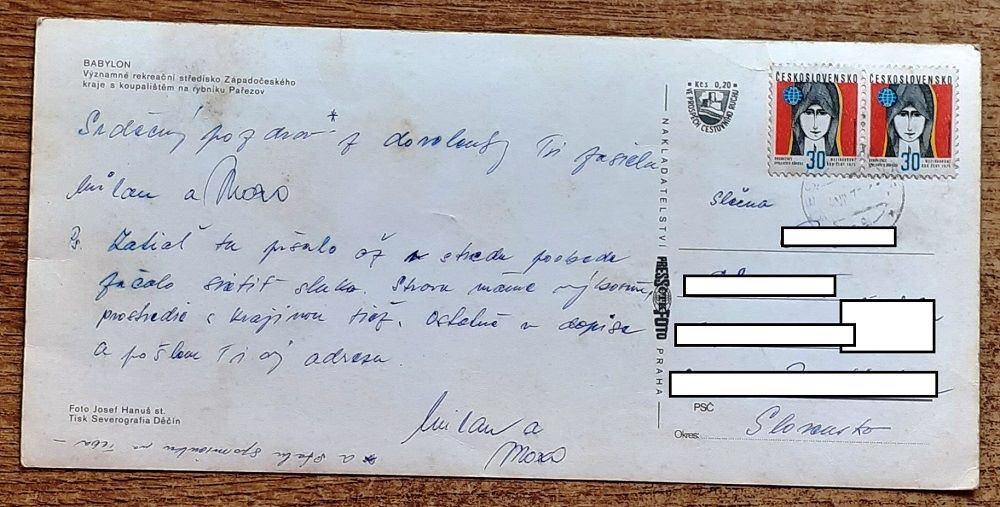 BABYLON
Významné rekreační středisko Západočeského
kraje s koupalištěm na rybníku Pařezov
Srdečný pozdrav* z dovolenky Ti zasiela
Milan a
Ps. Zatiaľ tu pršalo až v stredu poobede
začalo svietiť slnko. Stravu máme výbornú,
prostredie s krajinou tiež. Ostatné v dopise
a pošlem Ti aj adresu.
Milan a
* a stálu spomienku na Teba –
Foto Josef Hanuš st.
Tisk Severografia Děčín
Kčs 0,20
VE PROSPĚCH CESTOVNÍHO RUCHU
NAKLADATELSTVÍ PRESSFOTO PRAHA
ČESKOSLOVENSKO
30
MEZINÁRODNÍ
ROK ŽENY 1975
ČESKOSLOVENSKO
30
MEZINÁRODNÍ
ROK ŽENY 1975
Slečna
PSČ
Okres: Slovensko